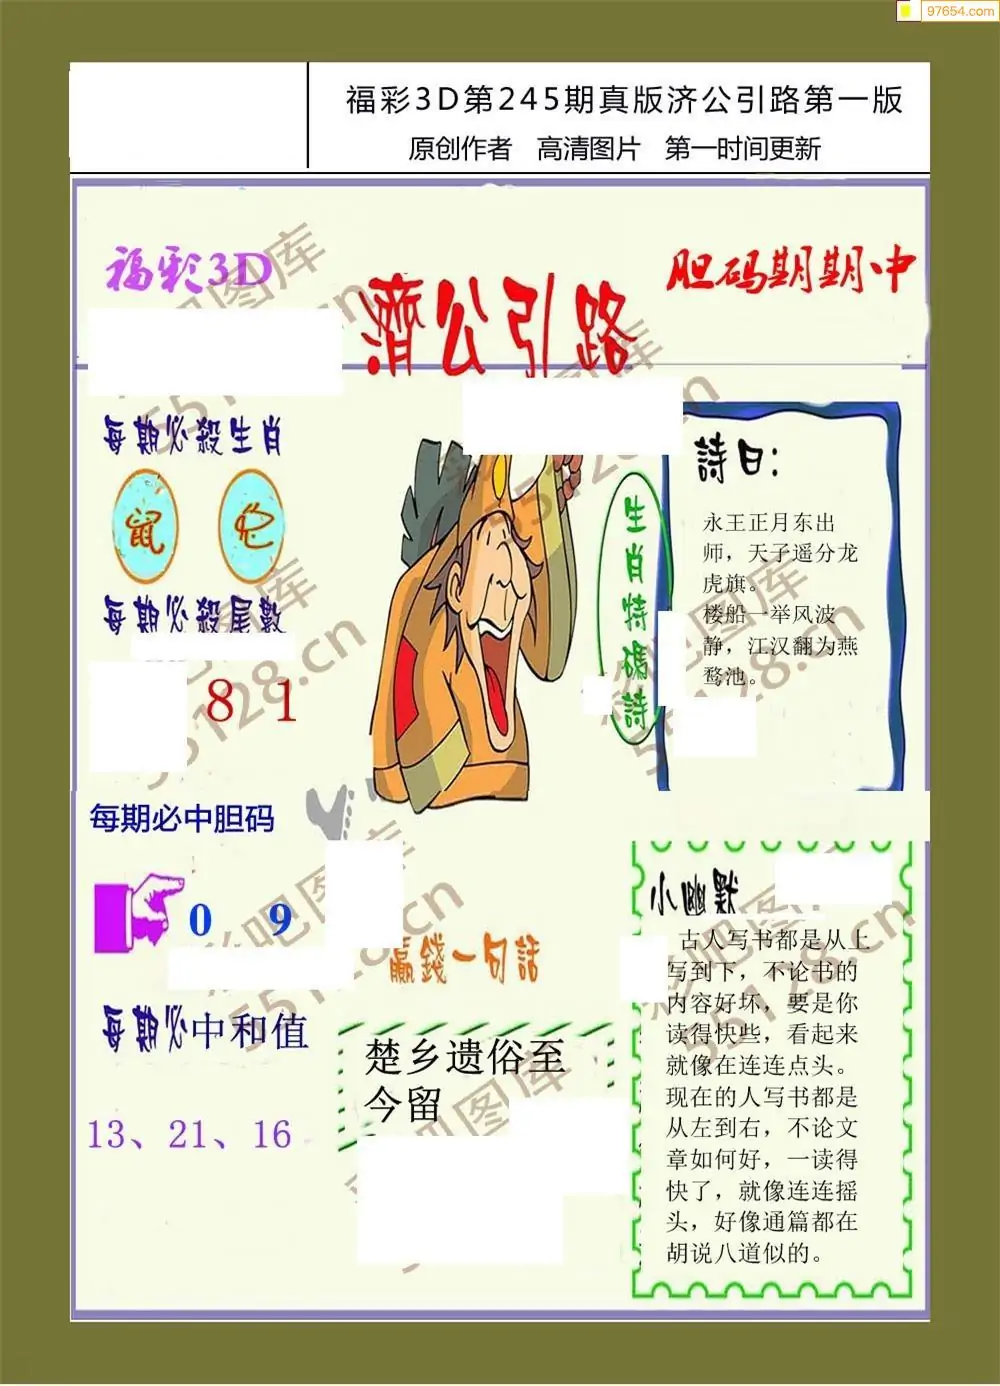 97654.com
福彩3D第245期真版济公引路第一版
原创作者 高清图片 第一时间更新
福彩3D
胆码期期中
濟公引路
每期必殺生肖
鼠
每期必殺尾數
8 1
生肖特碼詩
詩曰:
永王正月东出
师，天子遥分龙
虎旗。
楼船一举风波
静，江汉翻为燕
鹜池。
每期必中胆码
0 9
每期必中和值
13、21、16
赢錢一句話
楚乡遗俗至
今留
小幽默
古人写书都是从上
写到下，不论书的
内容好坏，要是你
读得快些，看起来
就像在连连点头。
现在的人写书都是
从左到右，不论文
章如何好，一读得
快了，就像连连摇
头，好像通篇都在
胡说八道似的。
彩吧图库
55128.cn